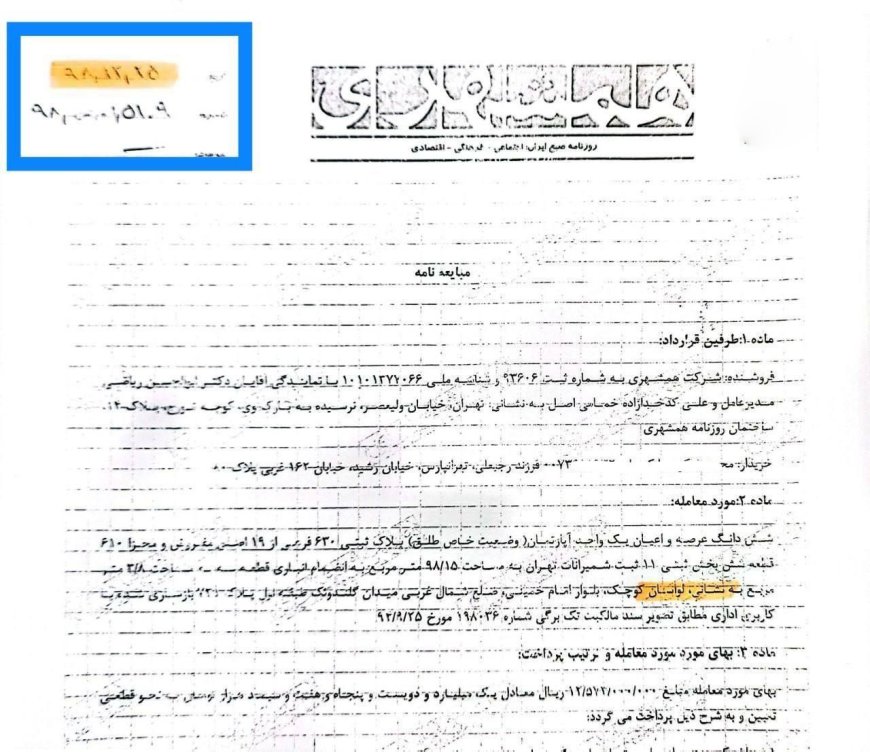 همشهری
روزنامه صبح ایران، اجتماعی - فرهنگی - اقتصادی
مبایعه نامه
ماده ۱:طرفین قرارداد:
فروشنده: شرکت همشهری به شماره ثبت ۹۳۶۰۶ و شناسه ملی ۱۰۱۰۱۳۷۷۰۶۶ با نمایندگی آقایان دکتر ریاضی،
مدیرعامل و علی کدخدازاده خماسی اصل به نشانی: تهران، خیابان ولیعصر، نرسیده به پارک وی، کوچه تورج، پلاک
ساختمان روزنامه همشهری
خریدار: ۰۰۷۳ فرزند رجبعلی، تهرانپارس، خیابان رشید، خیابان ۱۶۲ غربی پلاک
ماده ۲:مورد معامله:
شش دانگ عرصه و اعیان یک واحد آپارتمان( وضعیت خاص طلق) پلاک ثبتی ۶۳۰ فرعی از ۱۹ اصلی مفروز و مجزا ۶۱۰
قطعه شش بخش ثبتی ۱۱ ثبت شمیرانات تهران به مساحت ۹۸/۱۵ متر مربع به انضمام انباری قطعه سه مساحت ۳/۸ متر
مربع به نشانی، لواسان کوچک، بلوار امام خمینی، ضلع شمال غربی میدان گلندوئک طبقه اول پلاک
کاربری اداری مطابق تصویر سند مالکیت تک برگی شماره ۱۹۸۰۳۶ مورخ ۹۲/۹/۲۵
ماده ۳: بهای مورد مورد معامله و ترتیب پرداخت:
بهای مورد معامله مبلغ ۱۲/۵۷۳/۰۰۰/۰۰۰ ریال معادل یک میلیارد و دویست و پنجاه و هفت و سیصد هزار تومان به نحو قطعی
تعیین و به شرح ذیل پرداخت می گردد: